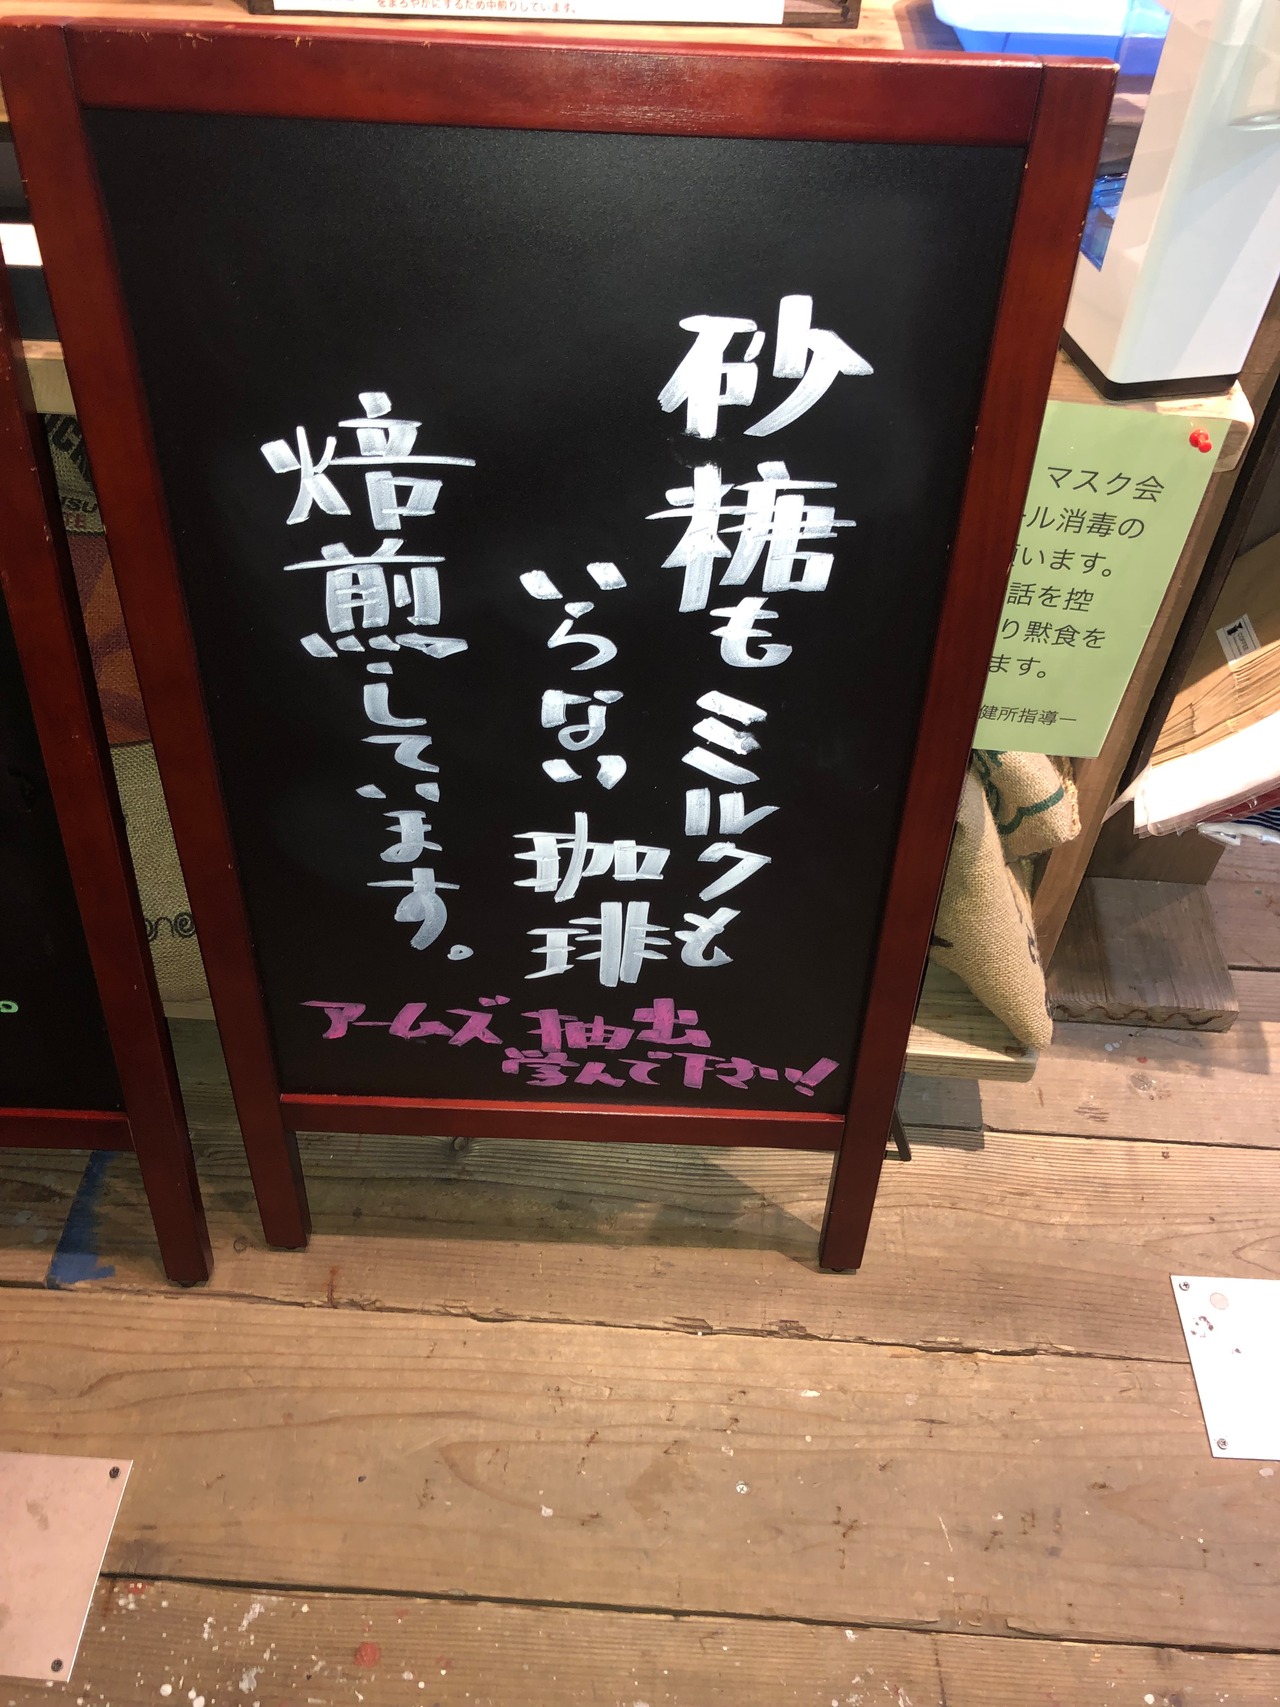 をまろやかにするため中煎りしています。
砂糖もミルクも
いらない珈琲
焙煎しています。
アームズ抽出
学んで下さい!
マスク会
ール消毒の
います。
話を控
り黙食を
ます。
健所指導一